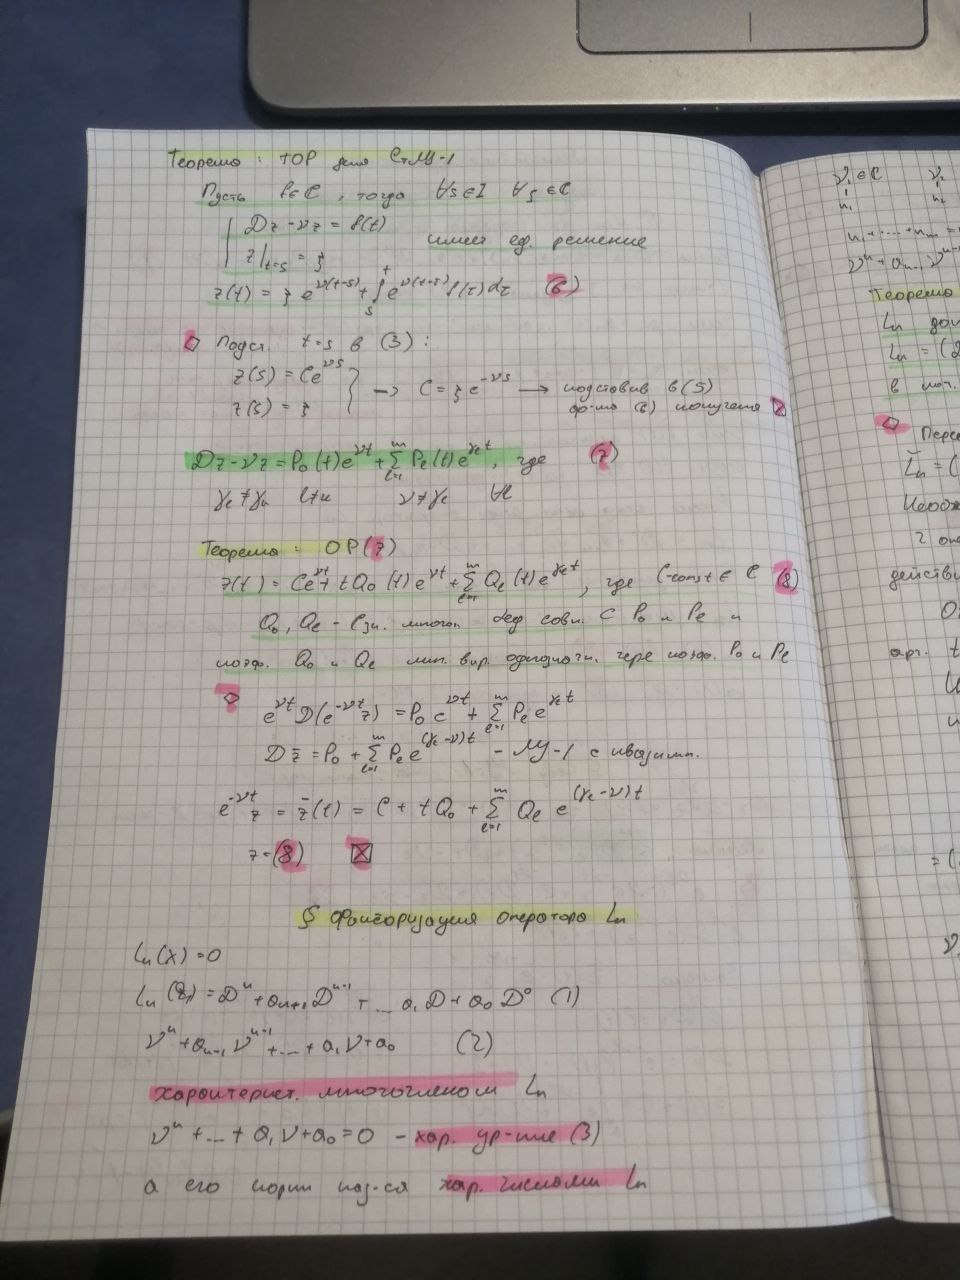 Теорема: ТОР для СтЛУ-1
Пусть f∈C, тогда ∀s∈I ∀ξ∈C
Dz-νz = f(t)
z|t=s = ξ имеет ед. решение
z(t) = ξe^ν(t-s) + ∫_s^t e^ν(t-τ) f(τ)dτ (6)
Подст. t=s в (3):
z(s) = Ce^νs
z(s) = ξ } → C = ξe^-νs → подставив в (5)
ф-ла (6) получена
Dz-νz = P₀(t)e^νt + Σ_{l=1}^m P_l(t)e^{γ_l t}, где (7)
γ_l ≠ γ_k l≠k ν≠γ_l ∀l
Теорема: ОР(7)
z(t) = Ce^νt + tQ₀(t)e^νt + Σ_{l=1}^m Q_l(t)e^{γ_l t}, где C-const ∈ C (8)
Q₀, Q_l - многоч. совп. с P₀ и P_l и
коэф. Q₀ и Q_l лин. выр. однозначн. чере коэф. P₀ и P_l
e^νt D(e^-νt z) = P₀e^νt + Σ_{l=1}^m P_l e^{γ_l t}
Dz̄ = P₀ + Σ_{l=1}^m P_l e^{(γ_l-ν)t} - ЛУ-1 с квазимн.
e^-νt z = z̄(t) = C + tQ₀ + Σ_{l=1}^m Q_l e^{(γ_l-ν)t}
z = (8)
§ Факторизация оператора Ln
Ln(x) = 0
Ln = Dⁿ + a_{n-1}D^{n-1} + ... a₁D + a₀D⁰ (1)
νⁿ + a_{n-1}ν^{n-1} + ... + a₁ν + a₀ (2)
характерист. многочленом Ln
νⁿ + ... + a₁ν + a₀ = 0 - хар. ур-ние (3)
а его корни наз-ся хар. числами Ln
ν₁∈C ν₂
n₁ n₂
n₁+...+n_m =
νⁿ + a_{n-1}ν^{n-1}
Теорема
Ln
Ln = (D
в
Ln = (
2
действи
арг. t
= (